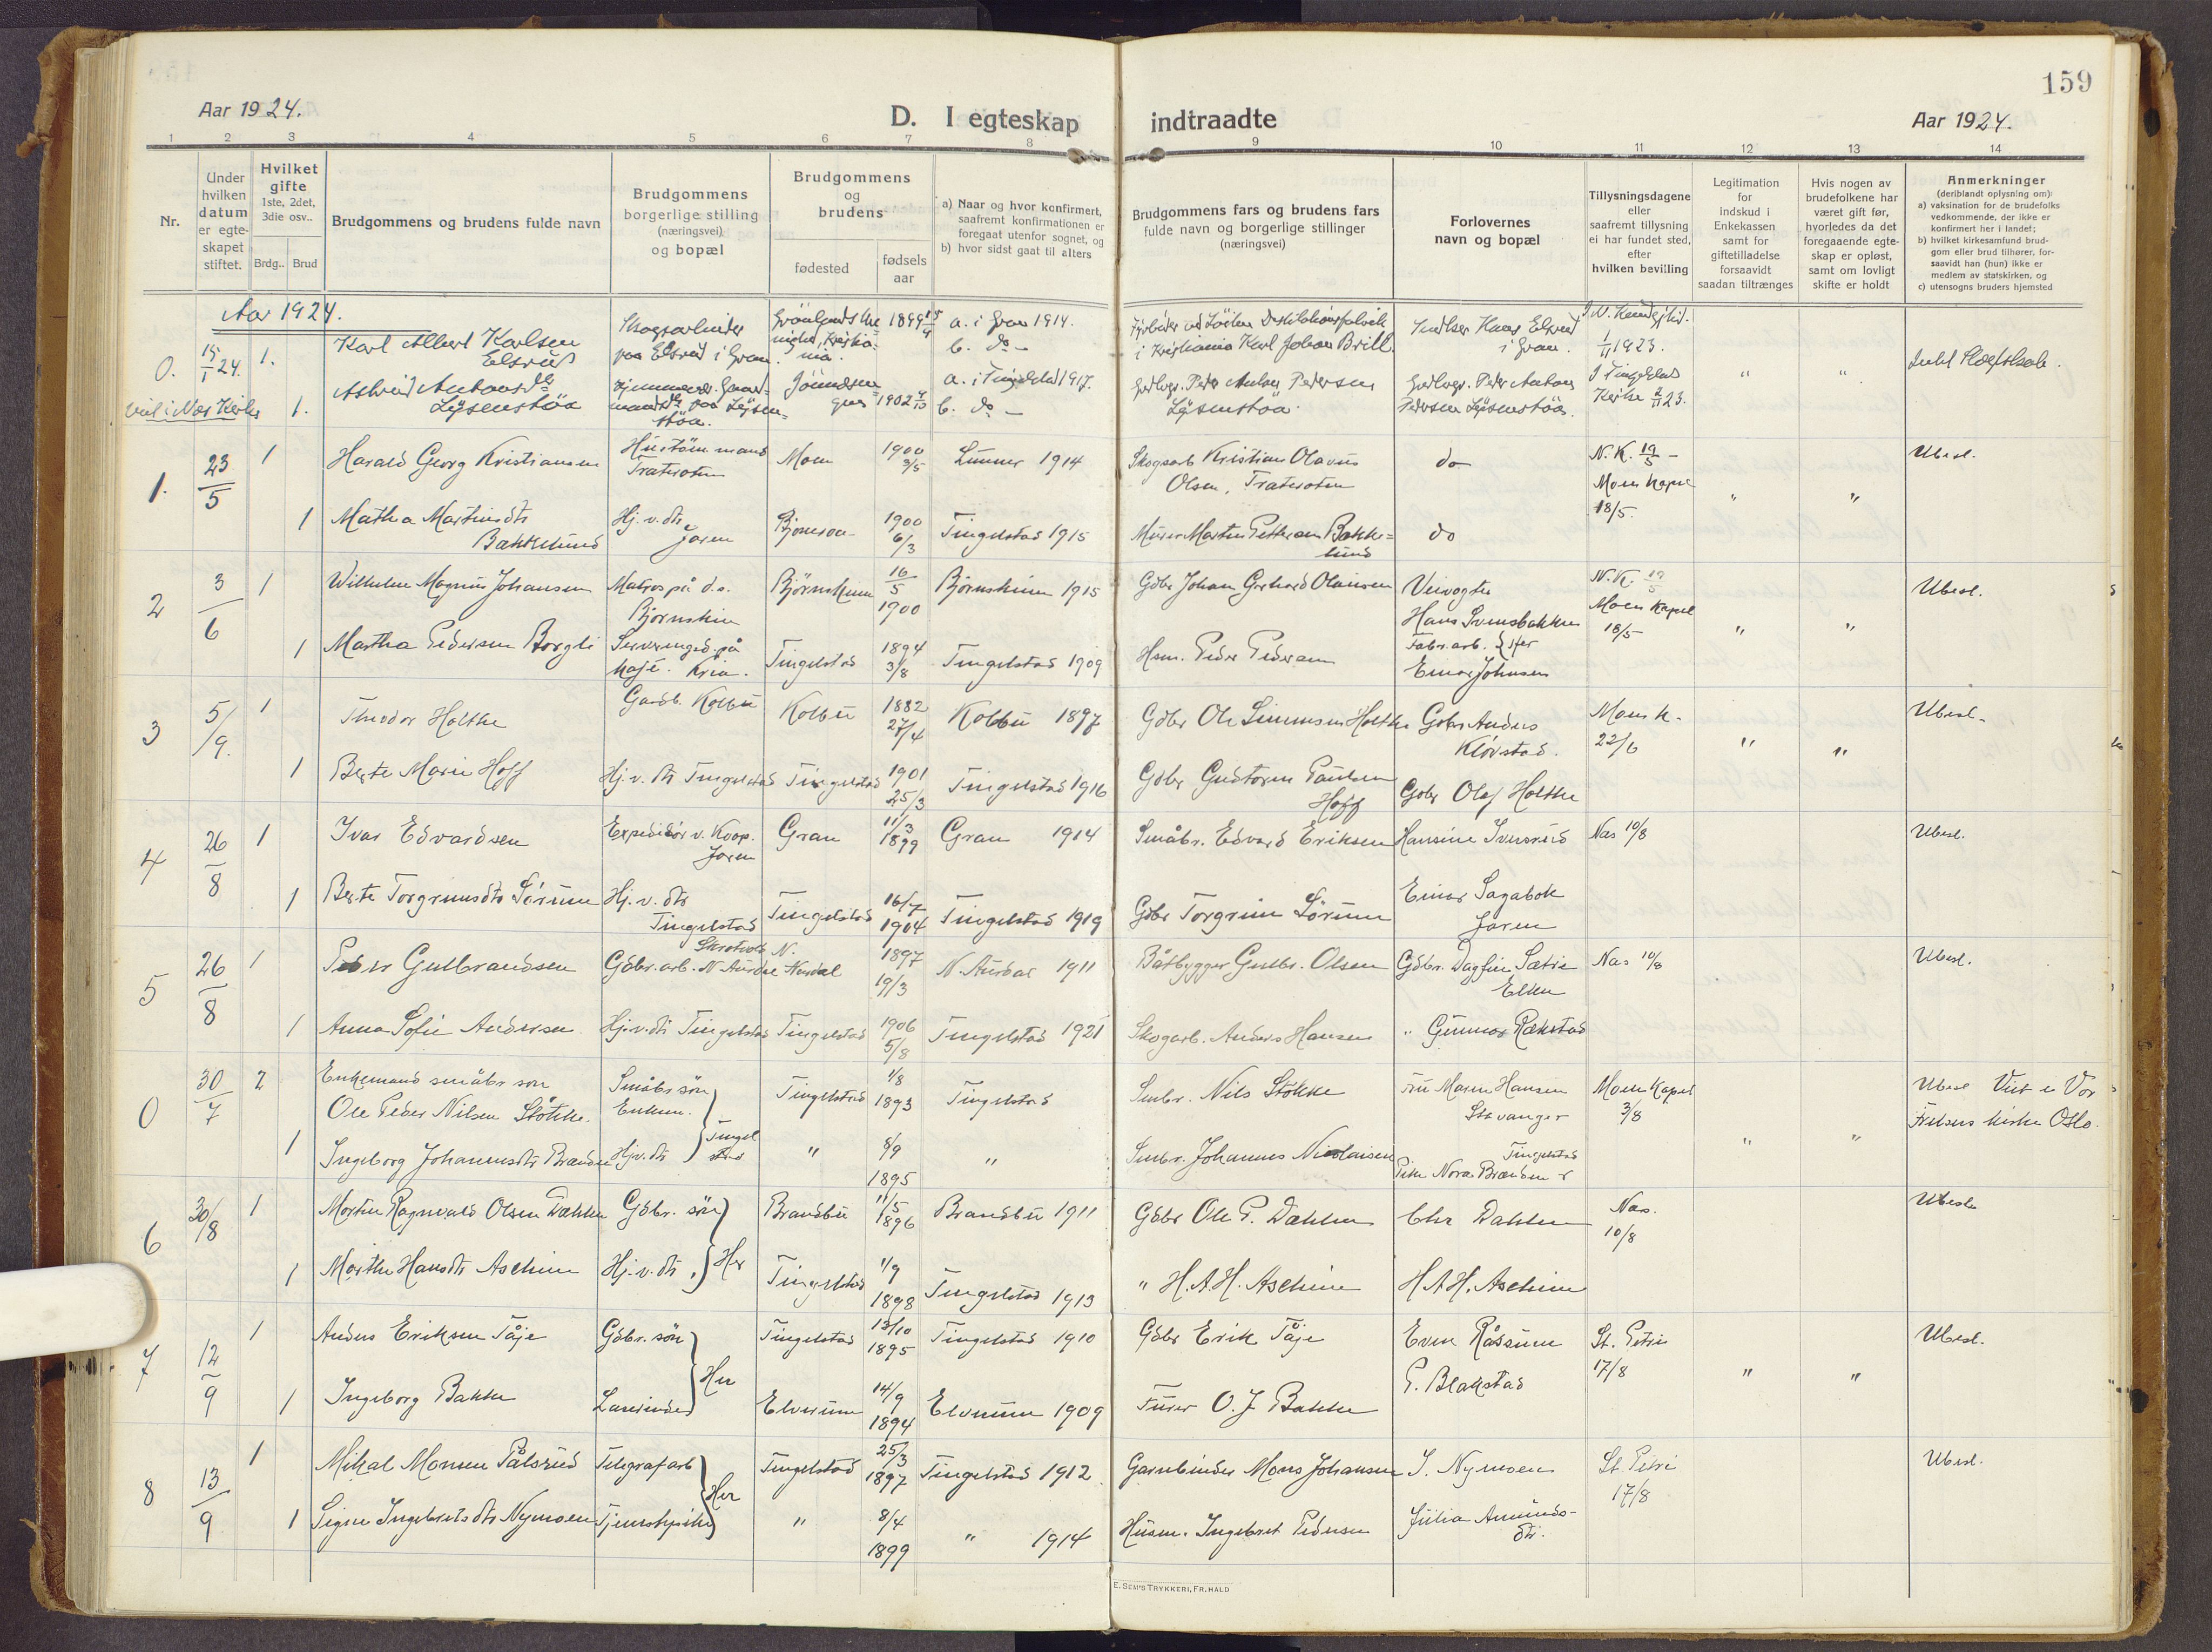 159
Aar 1924.
D. I egteskap indtraadte
Aar 1924.
1 2 3 4 5 6 7 8 9 10 11 12 13 14
Nr.
Under hvilken datum er egteskapet stiftet.
Hvilket gifte 1ste, 2det, 3die osv..
Brdg.. Brud
Brudgommens og brudens fulde navn
Brudgommens borgerlige stilling (næringsvei) og bopæl
Brudgommens og brudens
fødested
fødsels aar
a) Naar og hvor konfirmert, saafremt konfirmationen er foregaat utenfor sognet, og
b) hvor sidst gaat til alters
Brudgommens fars og brudens fars fulde navn og borgerlige stillinger (næringsvei)
Forlovernes navn og bopæl
Tillysningsdagene eller saafremt tillysning ei har fundet sted, efter hvilken bevilling
Legitimation for indskud i Enkekassen samt for giftetilladelse forsaavidt saadan tiltrænges
Hvis nogen av brudefolkene har været gift før, hvorledes da det foregaaende egteskap er opløst, samt om lovligt skifte er holdt
Anmerkninger
(deriblandt oplysning om):
a) vaksination for de brudefolks vedkommende, der ikke er konfirmert her i landet;
b) hvilket kirkesamfund brudgom eller brud tilhører, forsaavidt han (hun) ikke er medlem av statskirken, og
c) utensogns bruders hjemsted
Aar 1924.
0. 15/1 24. 1. Karl Albert Karlsen Elsrud Skogsarbeider paa Elsrud i Gran. 1899 a. i Gran 1914. b. do - i Kristiania Karl Johan Brill. Hans Elsrud i Gran. 1/11 1923.
viet i Næs Kirke 1. Astrid Antonsdtr Lysenstøa 1902 a. i Tingelstad 1917. b. do - Peder Anton Pedersen Lysenstøa. Peder Anton Pedersen Lysenstøa. I Tingelstad Kirke 23. " "
1. 23/5 1 Harald Georg Kristiansen Moen 1900 3/5 Lunner 1914 Skogsarb Kristian Olavus Olsen, do N.K. 19/5 - Moen Kapel 18/5. " " Ubesl.
1 Martha Martinsdtr Bækkelund Hj. v. dtr Jaren 1900 6/3 Tingelstad 1915 Murer Martin Pettersen Bækkelund do
2 3/6 1 Wilhelm Magnus Johansen Matros på d.s. Bjørnskin 16/5 1900 1915 Gdbr Johan Gerhard Olaussen Veivogter Hans Svensbakken N.K. 19/5 Moen Kapel 18/5 " " Ubesl.
1 Martha Pedersen Borgli Kria. Tingelstad 1894 3/8 Tingelstad 1909 Hsm. Peder Pedersen Fabr.arb. Einar Johnsen
3 5/9. 1 Theodor Holthe Gaardb. Kolbu Kolbu 1882 27/4 Kolbu 1897 Gdbr Ole Simensen Holthe Gdbr Anders Kløvstad. Moen K. 22/6 " " Ubesl.
1 Berte Marie Hoff Hj. v. dtr Tingelstad Tingelstad 1901 25/3 Tingelstad 1916 Gdbr Gudtorm Paulsen Hoff Gdbr Olaf Holthe
4 26/8 1 Ivar Edvardsen Expeditør v. Koop. Jaren Gran 11/3 1899 Gran 1914 Småbr. Edvard Eriksen Hansine Iversrud Næs 10/8 Ubesl.
1 Berte Torgrimsdtr Sørum Hj. v. dtr Tingelstad Tingelstad 16/7 1904 Tingelstad 1919 Gdbr Torgrim Sørum Einar Sagabok Jaren
5 26/8 1 Peder Gulbrandsen Gdbr.arb. N. Aurdal N. Aurdal 1897 19/3 N. Aurdal 1911 Båtbygger Gulbr. Olsen Gdbr. Dagfin Sætre Næs 10/8 Ubesl.
1 Anna Sofie Andersen Hj. v. dtr Tingelstad Tingelstad 1906 5/8 Tingelstad 1921 Skogarb. Anders Hansen " Gunnar Rækstad
0 30/7 2 Enkemand småbr søn Ole Peder Nilsen Støkke. Småbr søn Enkem. Tingelstad Tingelstad 1/8 1893 Tingelstad Smbr. Nils Støkke Fru Maren Hansen Stavanger Moen Kapel 3/8 " " Ubesl Viet i Vor Frelsers kirke Oslo.
1 Ingeborg Johannesdtr Brænden Hj. v. dtr " 8/9 1895 " Smbr. Johannes Nicolaisen Pike Nora Brænden Tingelstad
6 30/8 1 Martin Ragnvald Olsen Dæhlen Gdbr. søn Her Brandbu 11/5 1896 Brandbu 1911 Gdbr Ole P. Dæhlen Chr Dæhlen Næs. 10/8 Ubesl.
1 Marthe Hansdtr Aschim Hj. v. dtr. Tingelstad 1/9 1898 Tingelstad 1913 " H. A. H. Aschim H A H. Aschim
7 12/9 1 Anders Eriksen Tåje Gdbr. søn Her Tingelstad 13/10 1895 Tingelstad 1910 Gdbr Erik Tåje Even Råssum St. Petri 17/8 " " Ubesl.
1 Ingeborg Bakke Lærerinde Elverum 14/9 1894 Elverum 1909 O. J Bakke P. Blakstad
8 13/9 1 Mikal Monsen Pålsrud Telegrafarb Her Tingelstad 25/3 1897 Tingelstad 1912. Garnbinder Mons Johansen I. Nymoen St. Petri 17/8 Ubesl.
1 Signe Ingebretsdtr Nymoen Tjenestepike " 8/4 1899 " 1914 Husm. Ingebret Pedersen Julia Amundsdtr.
E. SEM'S TRYKKERI, FR.HALD